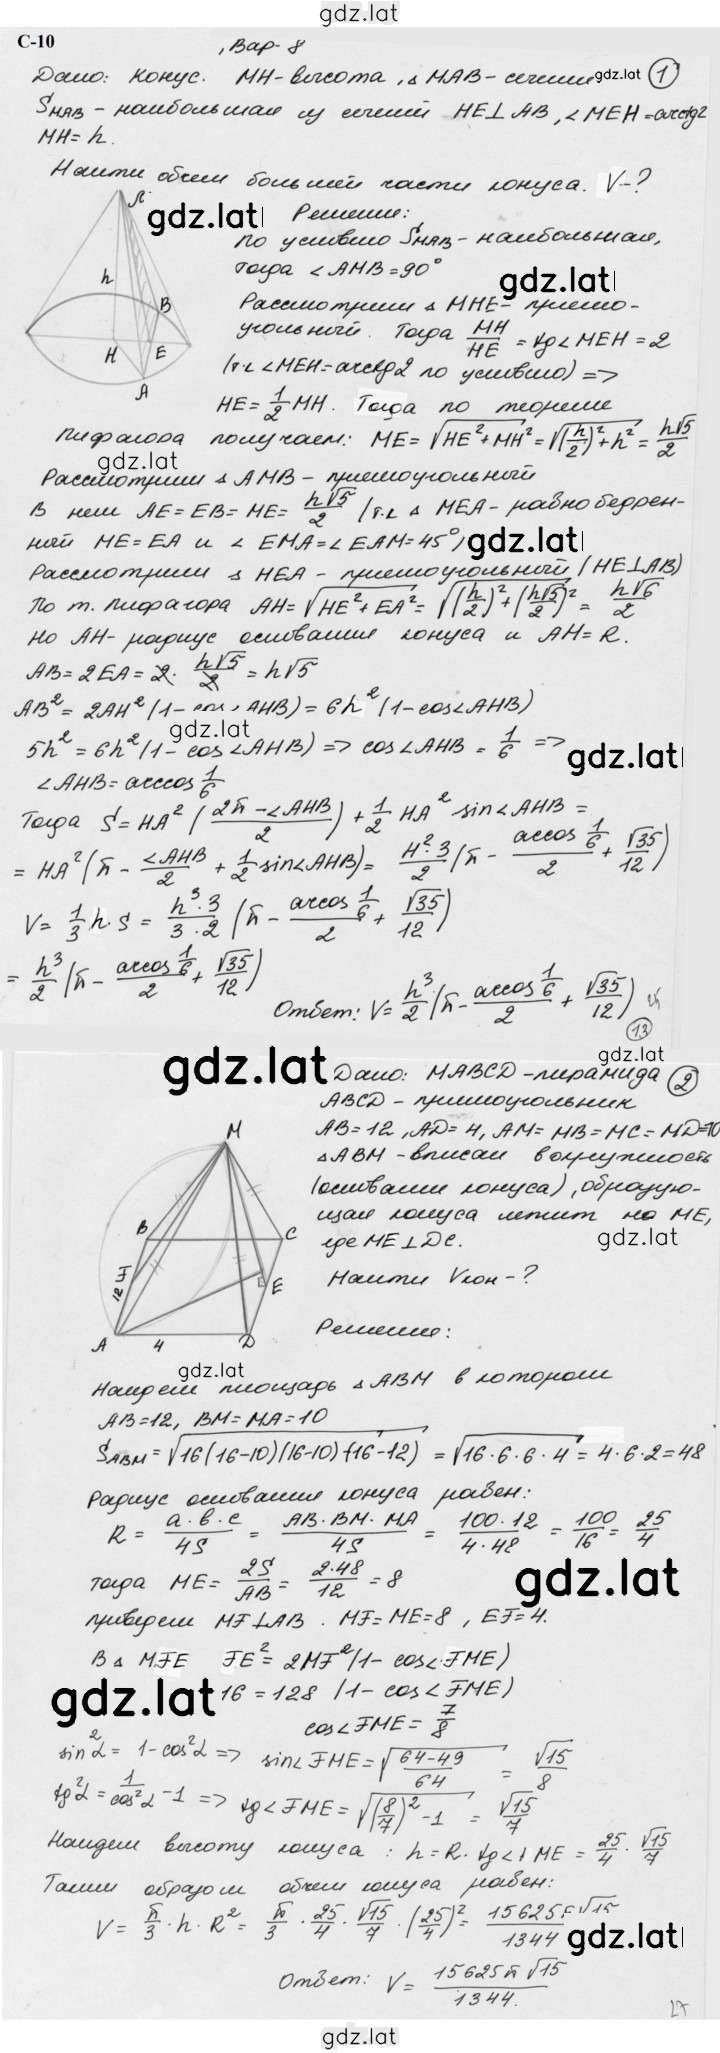 gdz.lat
С-10
, Вар- 8
Дано: Конус. MH-высота, △ MAB- сечение gdz.lat 1
S_MAB - наибольшая из сечений HE⊥AB, ∠MEH=arctg2
MH= h.
Найти объем большей части конуса. V-?
gdz.lat Решение:
По условию S_MAB- наибольшая,
тогда ∠AMB=90° gdz.lat
Рассмотрим △ MHE- прямо-
угольный. Тогда MH/HE = tg∠MEH=2
(т.к ∠MEH=arctg2 по условию) =>
HE=1/2 MH. Тогда по теореме
Пифагора получаем: ME=√(HE²+MH²)=√((h/2)²+h²)=h√5/2
gdz.lat
Рассмотрим △ AMB- прямоугольный
В нем AE=EB=ME=h√5/2 (т.к △ MEA- равнобедрен-
ный ME=EA и ∠EMA=∠EAM=45°) gdz.lat
Рассмотрим △ HEA - прямоугольный (HE⊥AB)
По т. Пифагора AH=√(HE²+EA²)=√((h/2)²+(h√5/2)²)=h√6/2
Но AH- радиус основания конуса и AH=R.
AB=2EA=2·h√5/2=h√5
AB²=2AH²(1-cos∠AHB)=6h²(1-cos∠AHB)
gdz.lat
5h²=6h²(1-cos∠AHB)=>cos∠AHB=1/6 =>
gdz.lat
∠AHB=arccos1/6
Тогда S=HA²((2π-∠AHB)/2)+1/2 HA² sin∠AHB =
= HA²(π-∠AHB/2+1/2 sin∠AHB)= H²·3/2(π-arccos1/6/2+√35/12)
V=1/3 h·S=h³·3/3·2(π-arccos1/6/2+√35/12)
=h³/2(π-arccos1/6/2+√35/12)
Ответ: V=h³/2(π-arccos1/6/2+√35/12)
13
gdz.lat
gdz.lat
Дано: MABCD-пирамида 2
ABCD- прямоугольник
AB=12, AD=4, AM=MB=MC=MD=10
△ABM-вписан в окружность
(основание конуса), образую-
щая конуса лежит на ME,
где ME⊥DC. gdz.lat
Найти Vкон-?
Решение:
gdz.lat
Найдем площадь △ABM в котором
AB=12, BM=MA=10
S_ABM=√(16(16-10)(16-10)(16-12))=√(16·6·6·4)=4·6·2=48
Радиус основания конуса равен:
R= a·b·c/4S = AB·BM·MA/4S = 100·12/4·48 = 100/16 = 25/4
тогда ME=2S/AB=2·48/12=8 gdz.lat
проведем MF⊥AB. MF=ME=8, EF=4.
В △ MFE FE²=2MF²(1-cos∠FME)
gdz.lat 16=128 (1-cos∠FME)
cos∠FME=7/8
sin²α=1-cos²α=> sin∠FME=√((64-49)/64)=√15/8
tg²α=1/cos²α-1=> tg∠FME=√((8/7)²-1)=√15/7
Найдем высоту конуса: h=R·tg∠FME=25/4·√15/7
Таким образом объем конуса равен:
V=π/3·h·R²=π/3·25/4·√15/7·(25/4)²=15625π√15/1344
gdz.lat
Ответ: V=15625π√15/1344.
27
gdz.lat